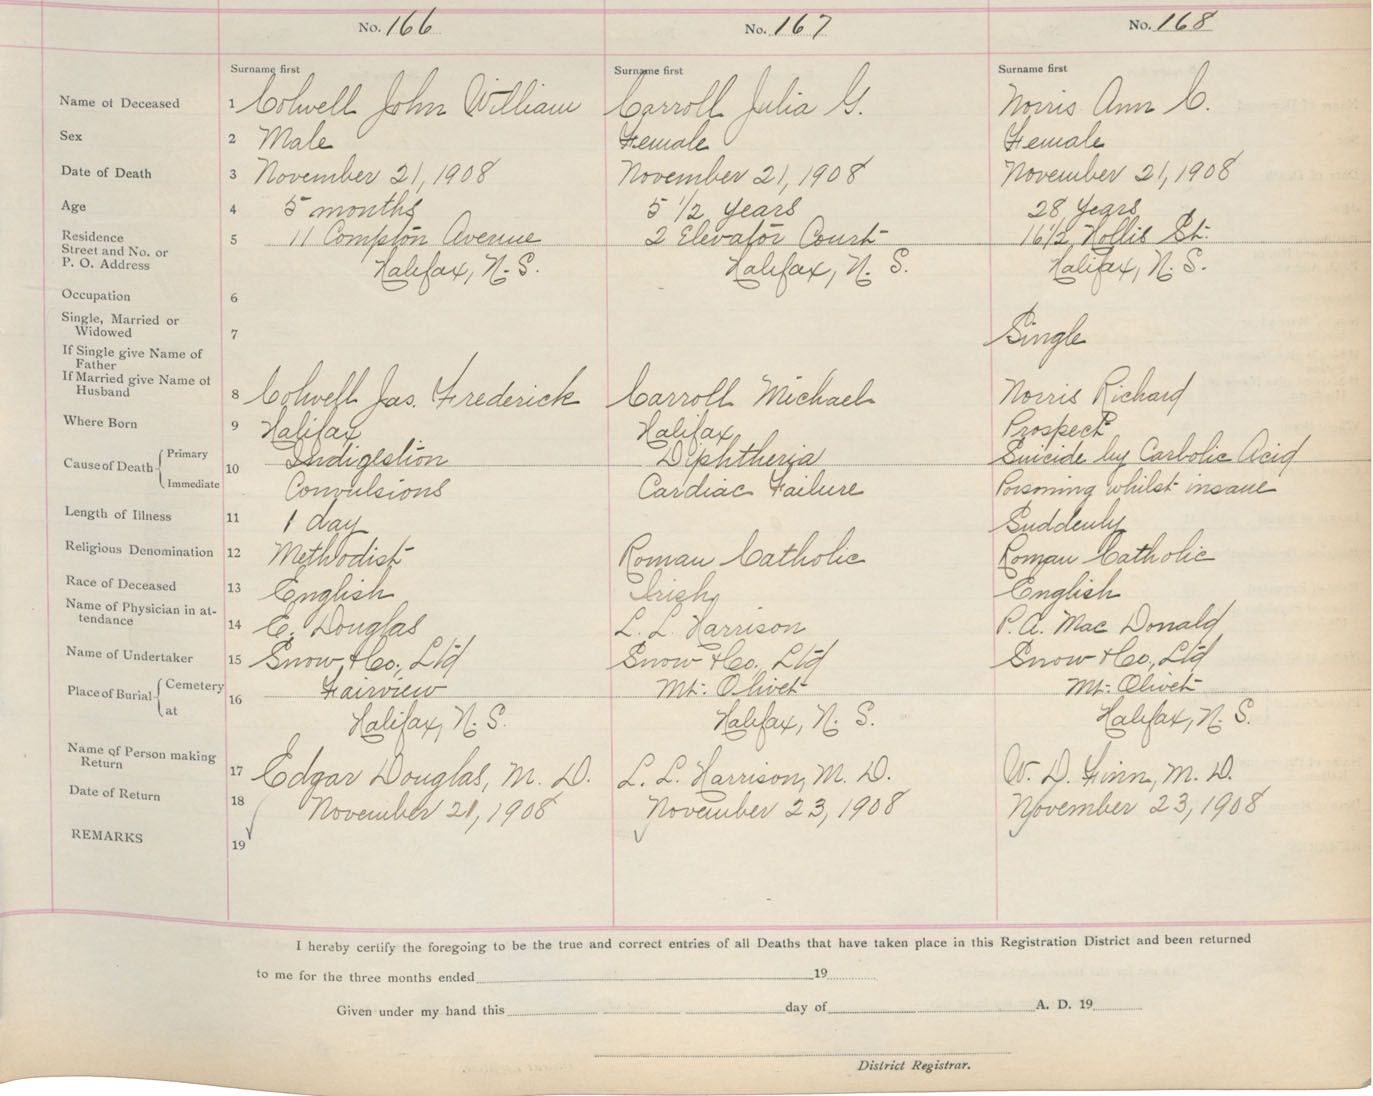 No. 166 No. 167 No. 168
Surname first Surname first Surname first
Name of Deceased 1 Colwell John William Carroll Julia G. Norris Ann C.
Sex 2 Male Female Female
Date of Death 3 November 21, 1908 November 21, 1908 November 21, 1908
Age 4 5 months 5 1/2 years 28 years
Residence
Street and No. or 5 11 Compton Avenue 2 Elevator Court 16 1/2 Hollis St.
P. O. Address Halifax, N. S. Halifax, N. S. Halifax, N. S.
Occupation 6
Single, Married or
Widowed 7 Single
If Single give Name of
Father
If Married give Name of
Husband 8 Colwell Jas. Frederick Carroll Michael Norris Richard
Where Born 9 Halifax Halifax Prospect
Cause of Death Primary 10 Indigestion Diphtheria Suicide by Carbolic Acid
Immediate Convulsions Cardiac Failure Poisoning whilst insane
Length of Illness 11 1 day Suddenly
Religious Denomination 12 Methodist Roman Catholic Roman Catholic
Race of Deceased 13 English Irish English
Name of Physician in at-
tendance 14 E. Douglas L. L. Harrison P. A. Mac Donald
Name of Undertaker 15 Snow & Co., Ltd Snow & Co., Ltd Snow & Co., Ltd
Place of Burial Cemetery 16 Fairview Mt. Olivet Mt. Olivet
at Halifax, N. S. Halifax, N. S. Halifax, N. S.
Name of Person making
Return 17 Edgar Douglas, M. D. L. L. Harrison, M. D. W. D. Finn, M. D.
Date of Return 18 November 21, 1908 November 23, 1908 November 23, 1908
REMARKS 19
I hereby certify the foregoing to be the true and correct entries of all Deaths that have taken place in this Registration District and been returned
to me for the three months ended 19
Given under my hand this day of A. D. 19
District Registrar.